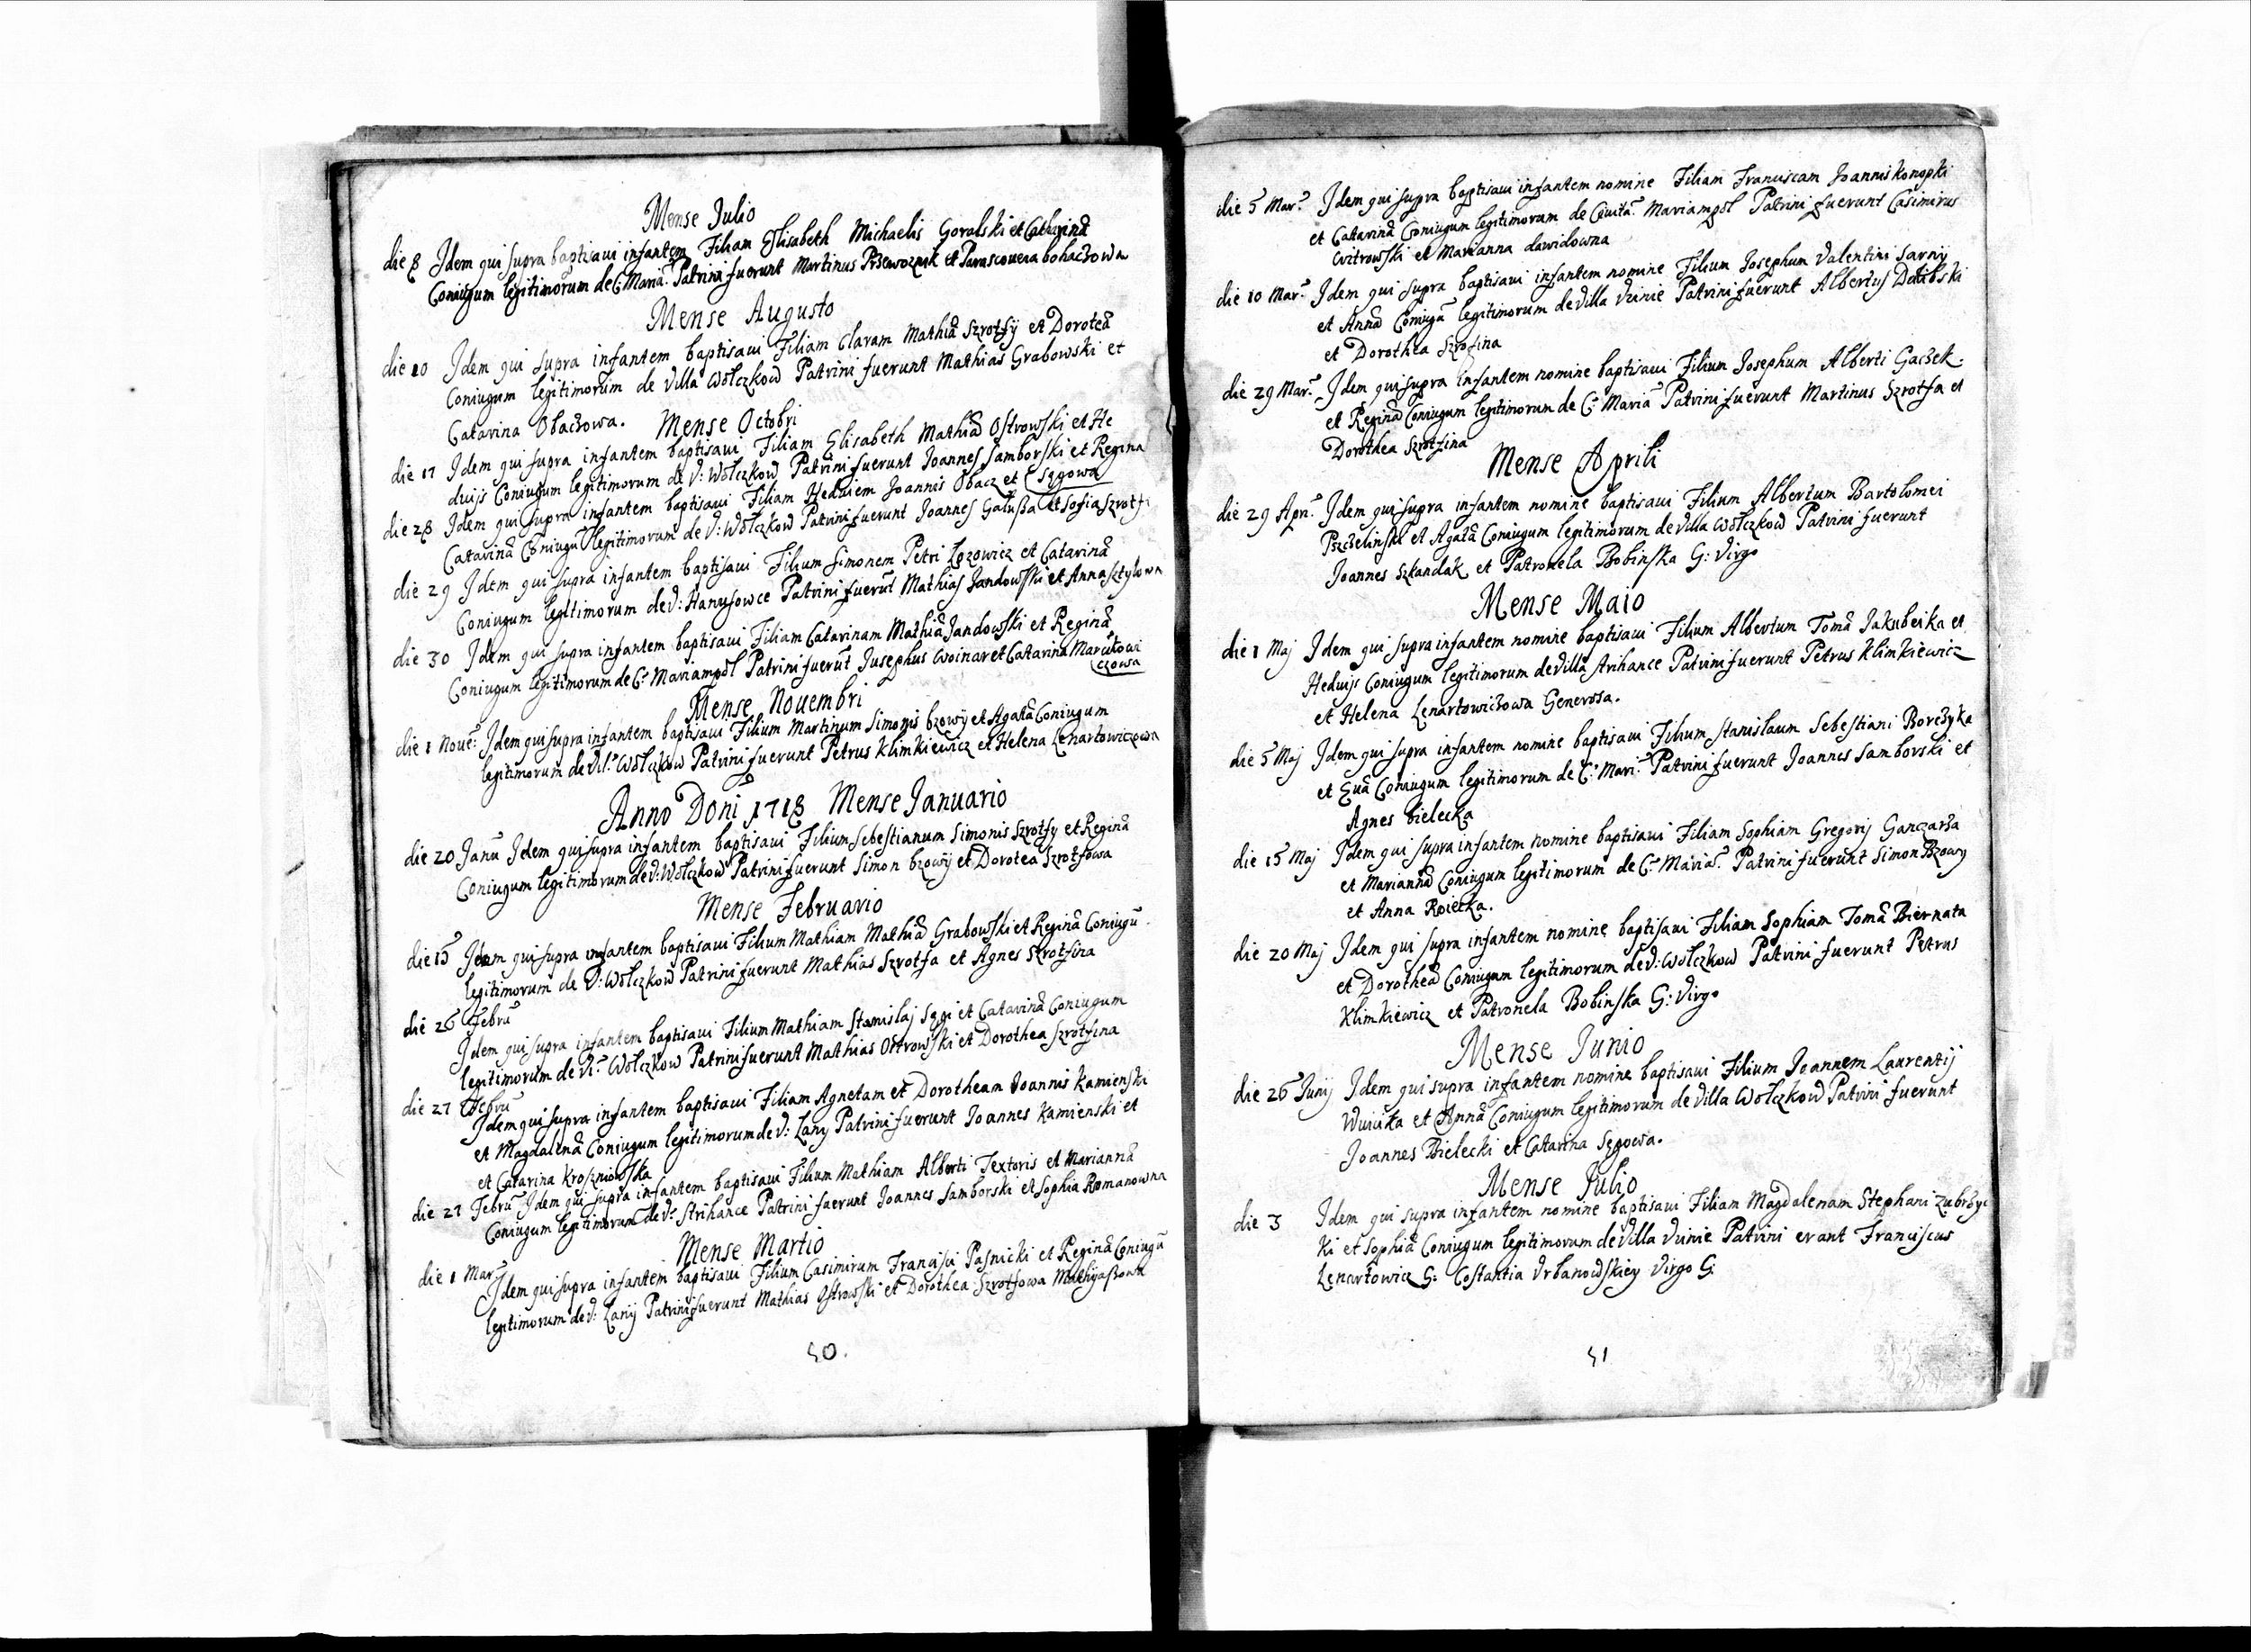 Mense Julio
die 8 Idem qui supra baptisaui infantem Filiam Elisabeth Michaelis Goralski et Catharinæ
Coniugum legitimorum de C: Maria: Patrini fuerunt Martinus Przewoznik et Parascouera bohaczowa
Mense Augusto
die 10 Idem qui supra infantem baptisaui Filiam Claram Mathiæ Szrotfy et Doroteæ
Coniugum legitimorum de Villa Wołczkow Patrini fuerunt Mathias Grabowski et
Catarina Obaczowa.
Mense Octobri
die 17 Idem qui supra infantem baptisaui Filiam Elisabeth Mathiæ Ostrowski et He
duijs Coniugum legitimorum de V: Wołczkow Patrini fuerunt Joannes Samborski et Regina
Sęgowa
die 28 Idem qui supra infantem baptisaui Filiam Heduiem Joannis Obacz et
Catarinæ Coniugũ legitimorum de V: Wołczkow Patrini fuerunt Joannes Gałusza et Sofia Szrotfi
die 29 Idem qui supra infantem baptisaui Filium Simonem Petri Łozowicz et Catarinæ
Coniugum legitimorum de V: Hanusowce Patrini fuerũt Mathias Jandowski et Anna Sztylowna
die 30 Idem qui supra infantem baptisaui Filiam Catarinam Mathiæ Jandowski et Reginæ
Coniugum legitimorum de C: Mariampol Patrini fuerũt Jusephus Woinar et Catarina Marcułowi
czowa
Mense Nouembri
die 1 Noue: Idem qui supra infantem baptisaui Filium Martinum Simonis bzowij et Agatæ Coniugum
legitimorum de Vil: Wołczkow Patrini fuerunt Petrus Klimkiewicz et Helena Lenartowiczowa
Anno Doni 1718 Mense Januario
die 20 Janu Idem qui supra infantem baptisaui Filium Sebestianum Simonis Szrotfy et Reginæ
Coniugum legitimorum de V: Wołczkow Patrini fuerunt Simon bzowij et Dorotea Szrotfowa
Mense Februario
die 15 Idem qui supra infantem baptisaui Filium Mathiam Mathiæ Grabowski et Reginæ Coniugũ
legitimorum de V: Wołczkow Patrini fuerunt Mathias Szrotfa et Agnes Szrotfina
die 26 Febru
Idem qui supra infantem baptisaui Filium Mathiam Stanislaj Sęgi et Catarinæ Coniugum
legitimorum de Vi: Wołczkow Patrini fuerunt Mathias Ostrowski et Dorothea Szrotfina
die 27 Febru
Idem qui supra infantem baptisaui Filiam Agnetam et Dorotheam Joannis Kamienski
et Magdalenæ Coniugum legitimorum de V: Łany Patrini fuerunt Joannes Kamienski et
et Catarina Krosniowska
die 27 Febru Idem qui supra infantem baptisaui Filium Mathiam Alberti Textoris et Mariannæ
Coniugum legitimorum de V: Strihance Patrini fuerunt Joannes Samborski et Sophia Romanowna
Mense Martio
die 1 Mar:
Idem qui supra infantem baptisaui Filium Casimirum Francisci Pasnicki et Reginæ Coniugũ
legitimorum de V: Łanij Patrini fuerunt Mathias Ostrowski et Dorothea Szrotfowa Mathyaszowa
50.
die 5 Mar: Idem qui supra baptisaui infantem nomine Filiam Franciscam Joannis Konopki
et Catarinæ Coniugum legitimorum de Ciuita: Mariampol Patrini fuerunt Casimirus
Witrowski et Marianna dawidowna
die 10 Mar: Idem qui supra baptisaui infantem nomine Filium Josephum Valentini Sarnij
et Annæ Coniugũ legitimorum de Villa Vzinie Patrini fuerunt Albertus
et Dorothea Szrotfina
die 29 Mar: Idem qui supra infantem nomine baptisaui Filium Josephum Alberti Gaczek:
et Reginæ Coniugum legitimorum de C: Maria Patrini fuerunt Martinus Szrotfa et
Dorothea Szrotfina
Mense Aprili
die 29 Apri: Idem qui supra infantem nomine baptisaui Filium Albertum Bartolomei
Pszczelinski et Agatæ Coniugum legitimorum de Villa Wołczkow Patrini fuerunt
Joannes Szkandak et Patronela Bobinska G: Virgo
Mense Maio
die 1 Maj Idem qui supra infantem nomine baptisaui Filium Albertum Tomæ Jakubeika et
Heduijs Coniugum legitimorum de Villa Strihance Patrini fuerunt Petrus Klimkiewicz
et Helena Lenartowiczowa Generosa.
die 5 Maj Idem qui supra infantem nomine baptisaui Filium Stanislaum Sebestiani Borczyka
et Euæ Coniugum legitimorum de C: Mari: Patrini fuerunt Joannes Samborski et
Agnes bielecka
die 15 Maj Idem qui supra infantem nomine baptisaui Filiam Sophiam Gregorij Ganczarza
et Mariannæ Coniugum legitimorum de C: Maria: Patrini fuerunt Simon Bzowy
et Anna Roiecka.
die 20 Maj Idem qui supra infantem nomine baptisaui Filiam Sophiam Tomæ Biernata
et Dorotheæ Coniugum legitimorum de V: Wołczkow Patrini fuerunt Petrus
Klimkiewicz et Patronela Bobinska G: Virgo
Mense Junio
die 26 Junij Idem qui supra infantem nomine baptisaui Filium Joannem Laurentij
Wuicika et Annæ Coniugum legitimorum de Villa Wołczkow Patrini fuerunt
Joannes Bielecki et Catarina Sęgowa.
Mense Julio
die 3 Idem qui supra infantem nomine baptisaui Filiam Magdalenam Stephani Zubrzyc
ki et Sophiæ Coniugum legitimorum de Villa Vzinie Patrini erant Franciscus
Lenartowicz G: Costantia Vrbanowskiey Virgo G:
51